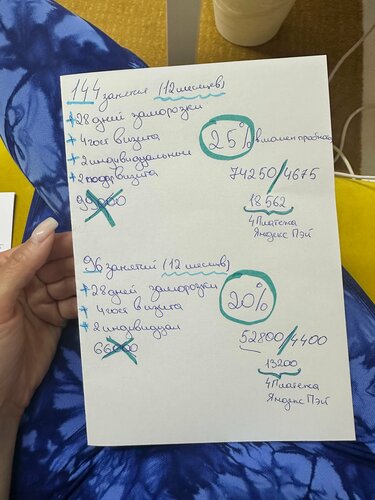 144 занятия (12 месяцев)
+ 28 дней заморозки
+ 4 гост визита
+ 2 индивидуальные
+ 2 подр визита
25% в момен пробной
99000
74250/4675
18562
4 Платежа
Яндекс Пэй
96 занятий (12 месяцев)
+ 28 дней заморозки
+ 4 гост визита
+ 2 индивидуал
20%
66000
52800/4400
13200
4 Платежа
Яндекс Пэй